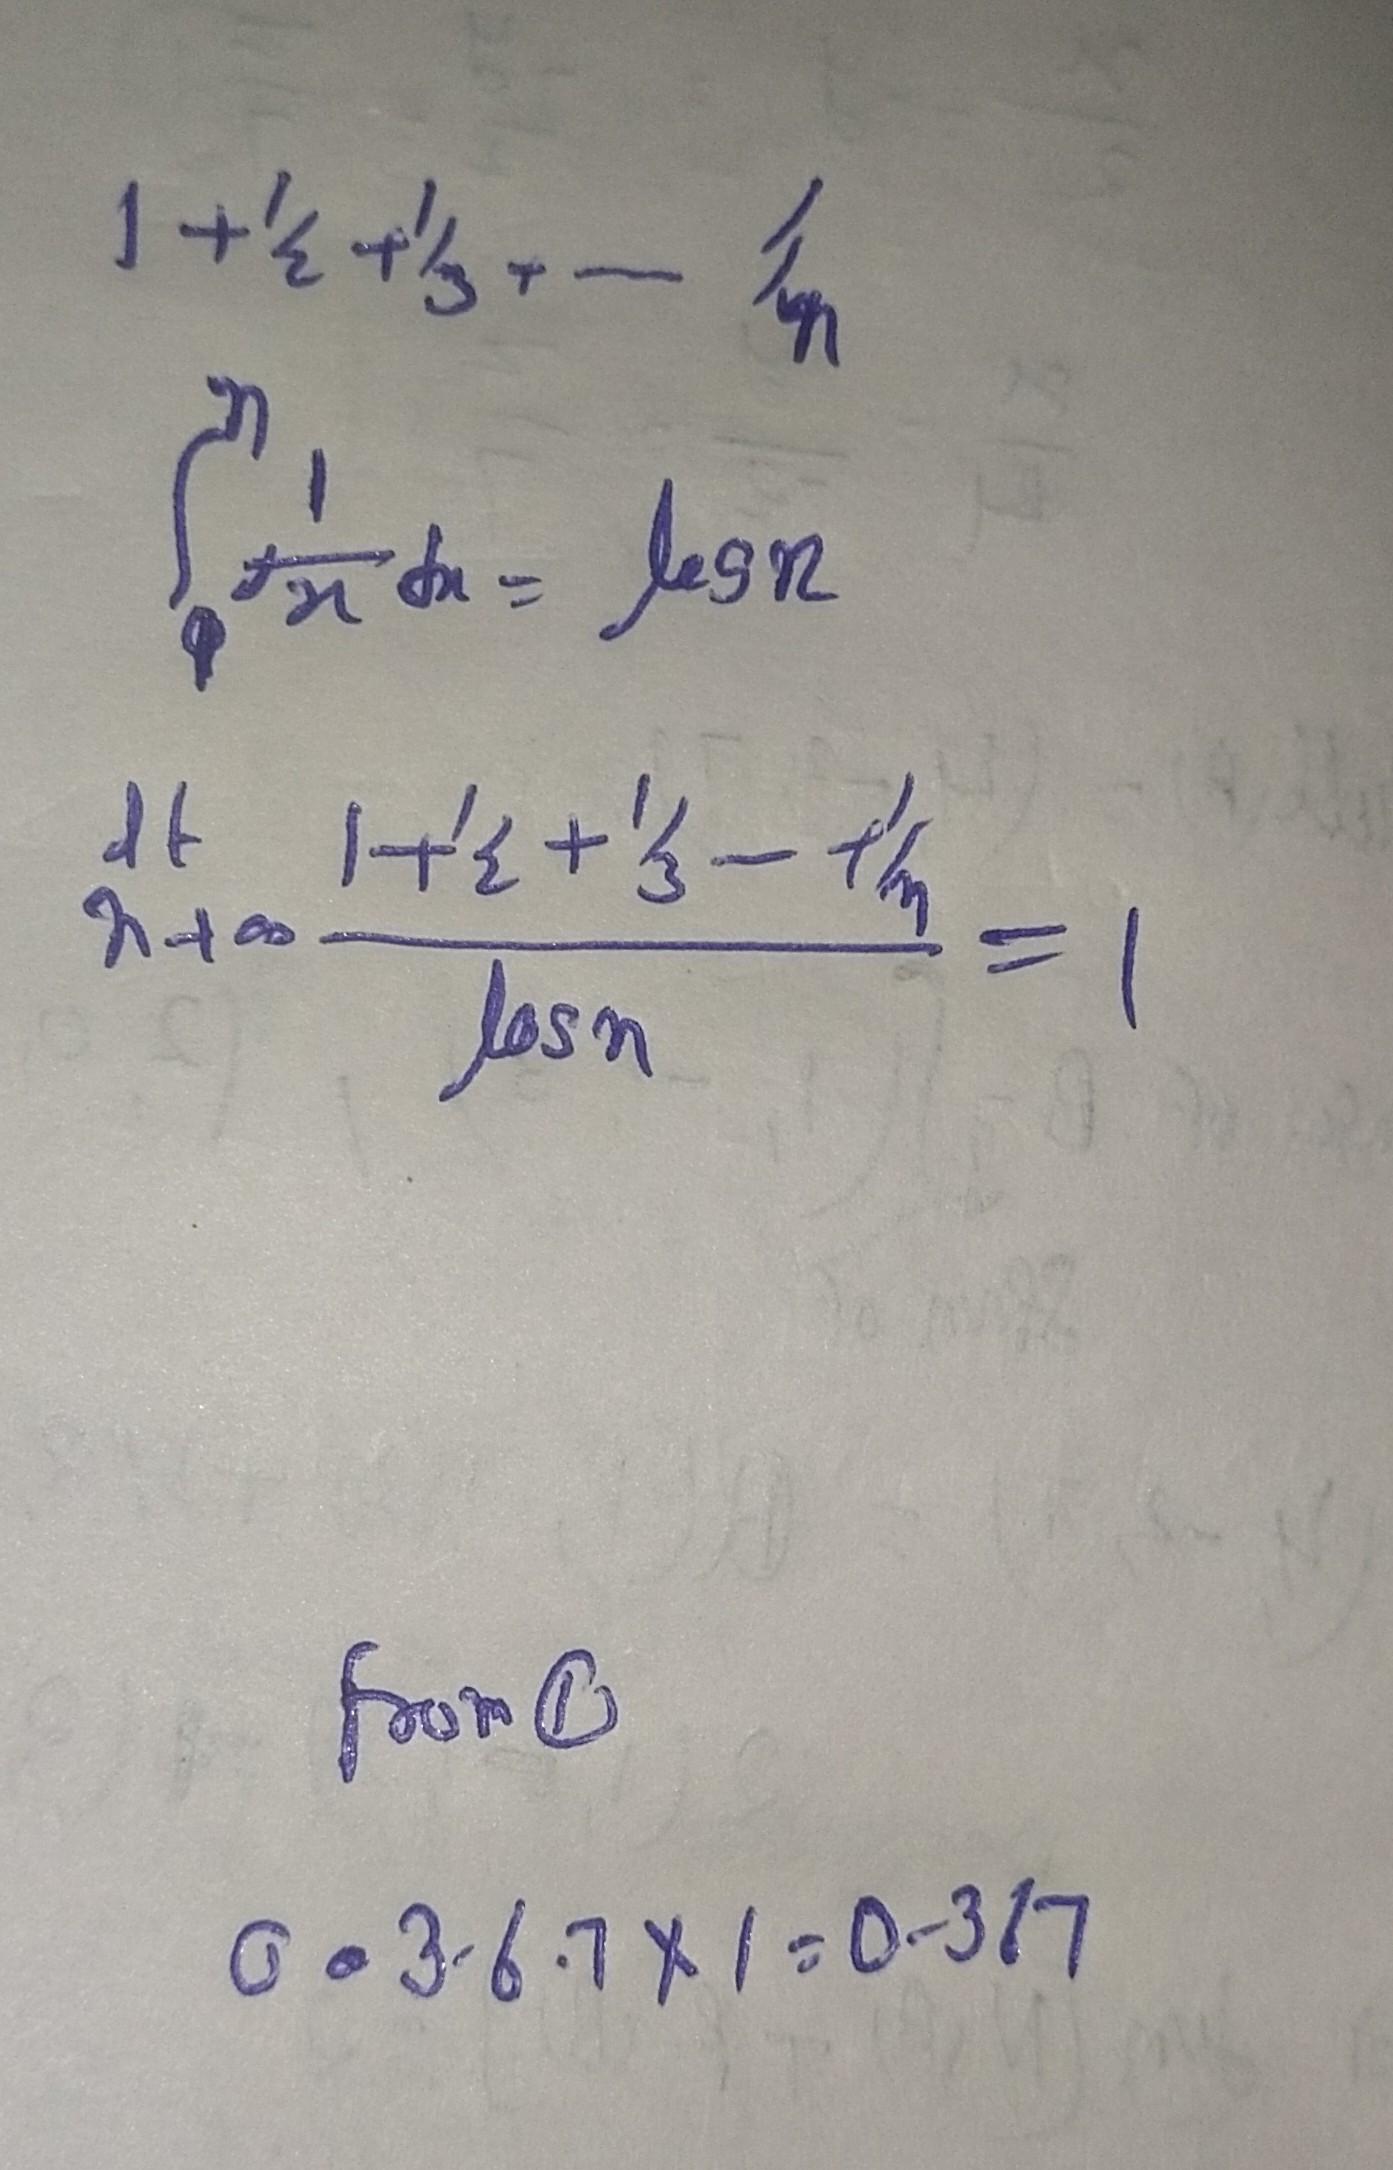 1 + 1/2 + 1/3 + — 1/n
∫₁ⁿ 1/x dx = log n
lt n→∞ (1 + 1/2 + 1/3 — + 1/n) / log n = 1
from ①
0.3.6.7 × 1 = 0.367